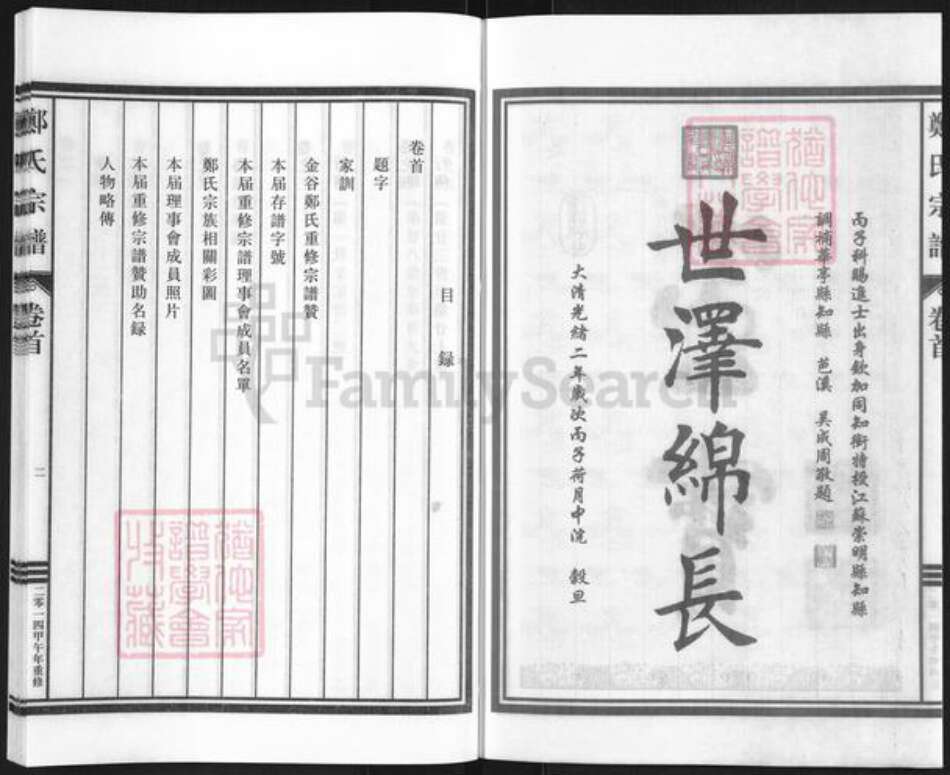 丙子科賜進士出身欽加同知銜特授江蘇崇明縣知縣
調補華亭縣知縣 芭溪 吳成周敬題
世澤綿長
大清光緒二年歲次丙子荷月中浣 穀旦
鄭氏宗譜 卷首
目 録
卷首
題字
家訓
金谷鄭氏重修宗譜贊
本届存譜字號
本届重修宗譜理事會成員名單
鄭氏宗族相關彩圖
本届理事會成員照片
本届重修宗譜贊助名録
人物略傳
鄭氏宗譜 卷首 二 二零一四甲午年重修
FamilySearch